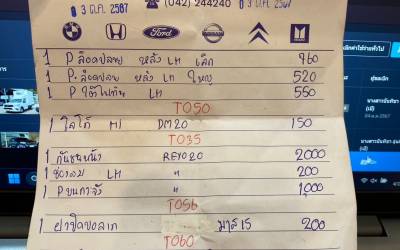 3 ต.ค. 2567 (042) 244240 3 ต.ค. 2567
Ford NISSAN
1 P ล็อคปลาย หลัง LH เล็ก 960
1 P. ล็อคปลาย หลัง LH ใหญ่ 520
1 P ใต้ไฟท้าย LH 550
TO50
1 โลโก้ HI DM20 150
TO35
1 กันชนหน้า REVO20 2000
1 LH " 200
1 P " 1,000
TO56
1 ฝาปิดขอลาก มาส 15 200
TO60